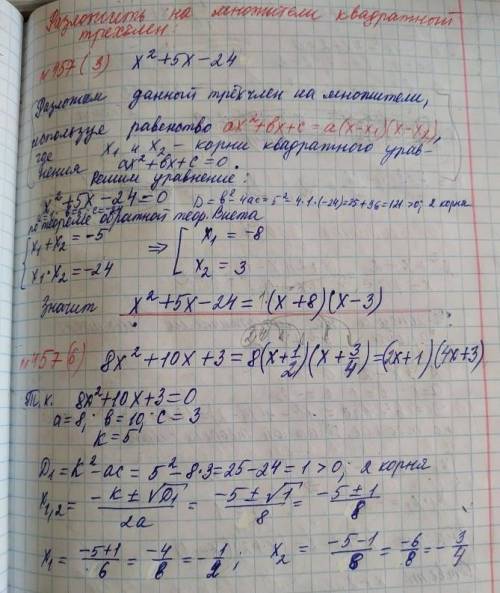 Разложить на множители квадратный
трёхчлен:
№957(3) x²+5x-24
Разложим данный трёхчлен на множители,
используя равенство ax²+bx+c=a(x-x₁)(x-x₂),
где x₁ и x₂ - корни квадратного урав-
нения ax²+bx+c=0.
Решим уравнение:
x²+5x-24=0 D=b²-4ac=5²-4·1·(-24)=25+96=121>0; 2 корня
по теореме обратной теор. Виета
{ x₁+x₂=-5 ⇒ [ x₁=-8
x₁·x₂=-24 x₂=3
Значит x²+5x-24=1·(x+8)(x-3)
№957(6) 8x²+10x+3=8(x+1/2)(x+3/4)=(2x+1)(4x+3)
Т.к. 8x²+10x+3=0
a=8; b=10; c=3
k=5
D₁=k²-ac=5²-8·3=25-24=1>0; 2 корня
x₁,₂=(-k±√D₁)/2a=(-5±√1)/8=(-5±1)/8
x₁=(-5+1)/6=-4/8=-1/2; x₂=(-5-1)/8=-6/8=-3/4